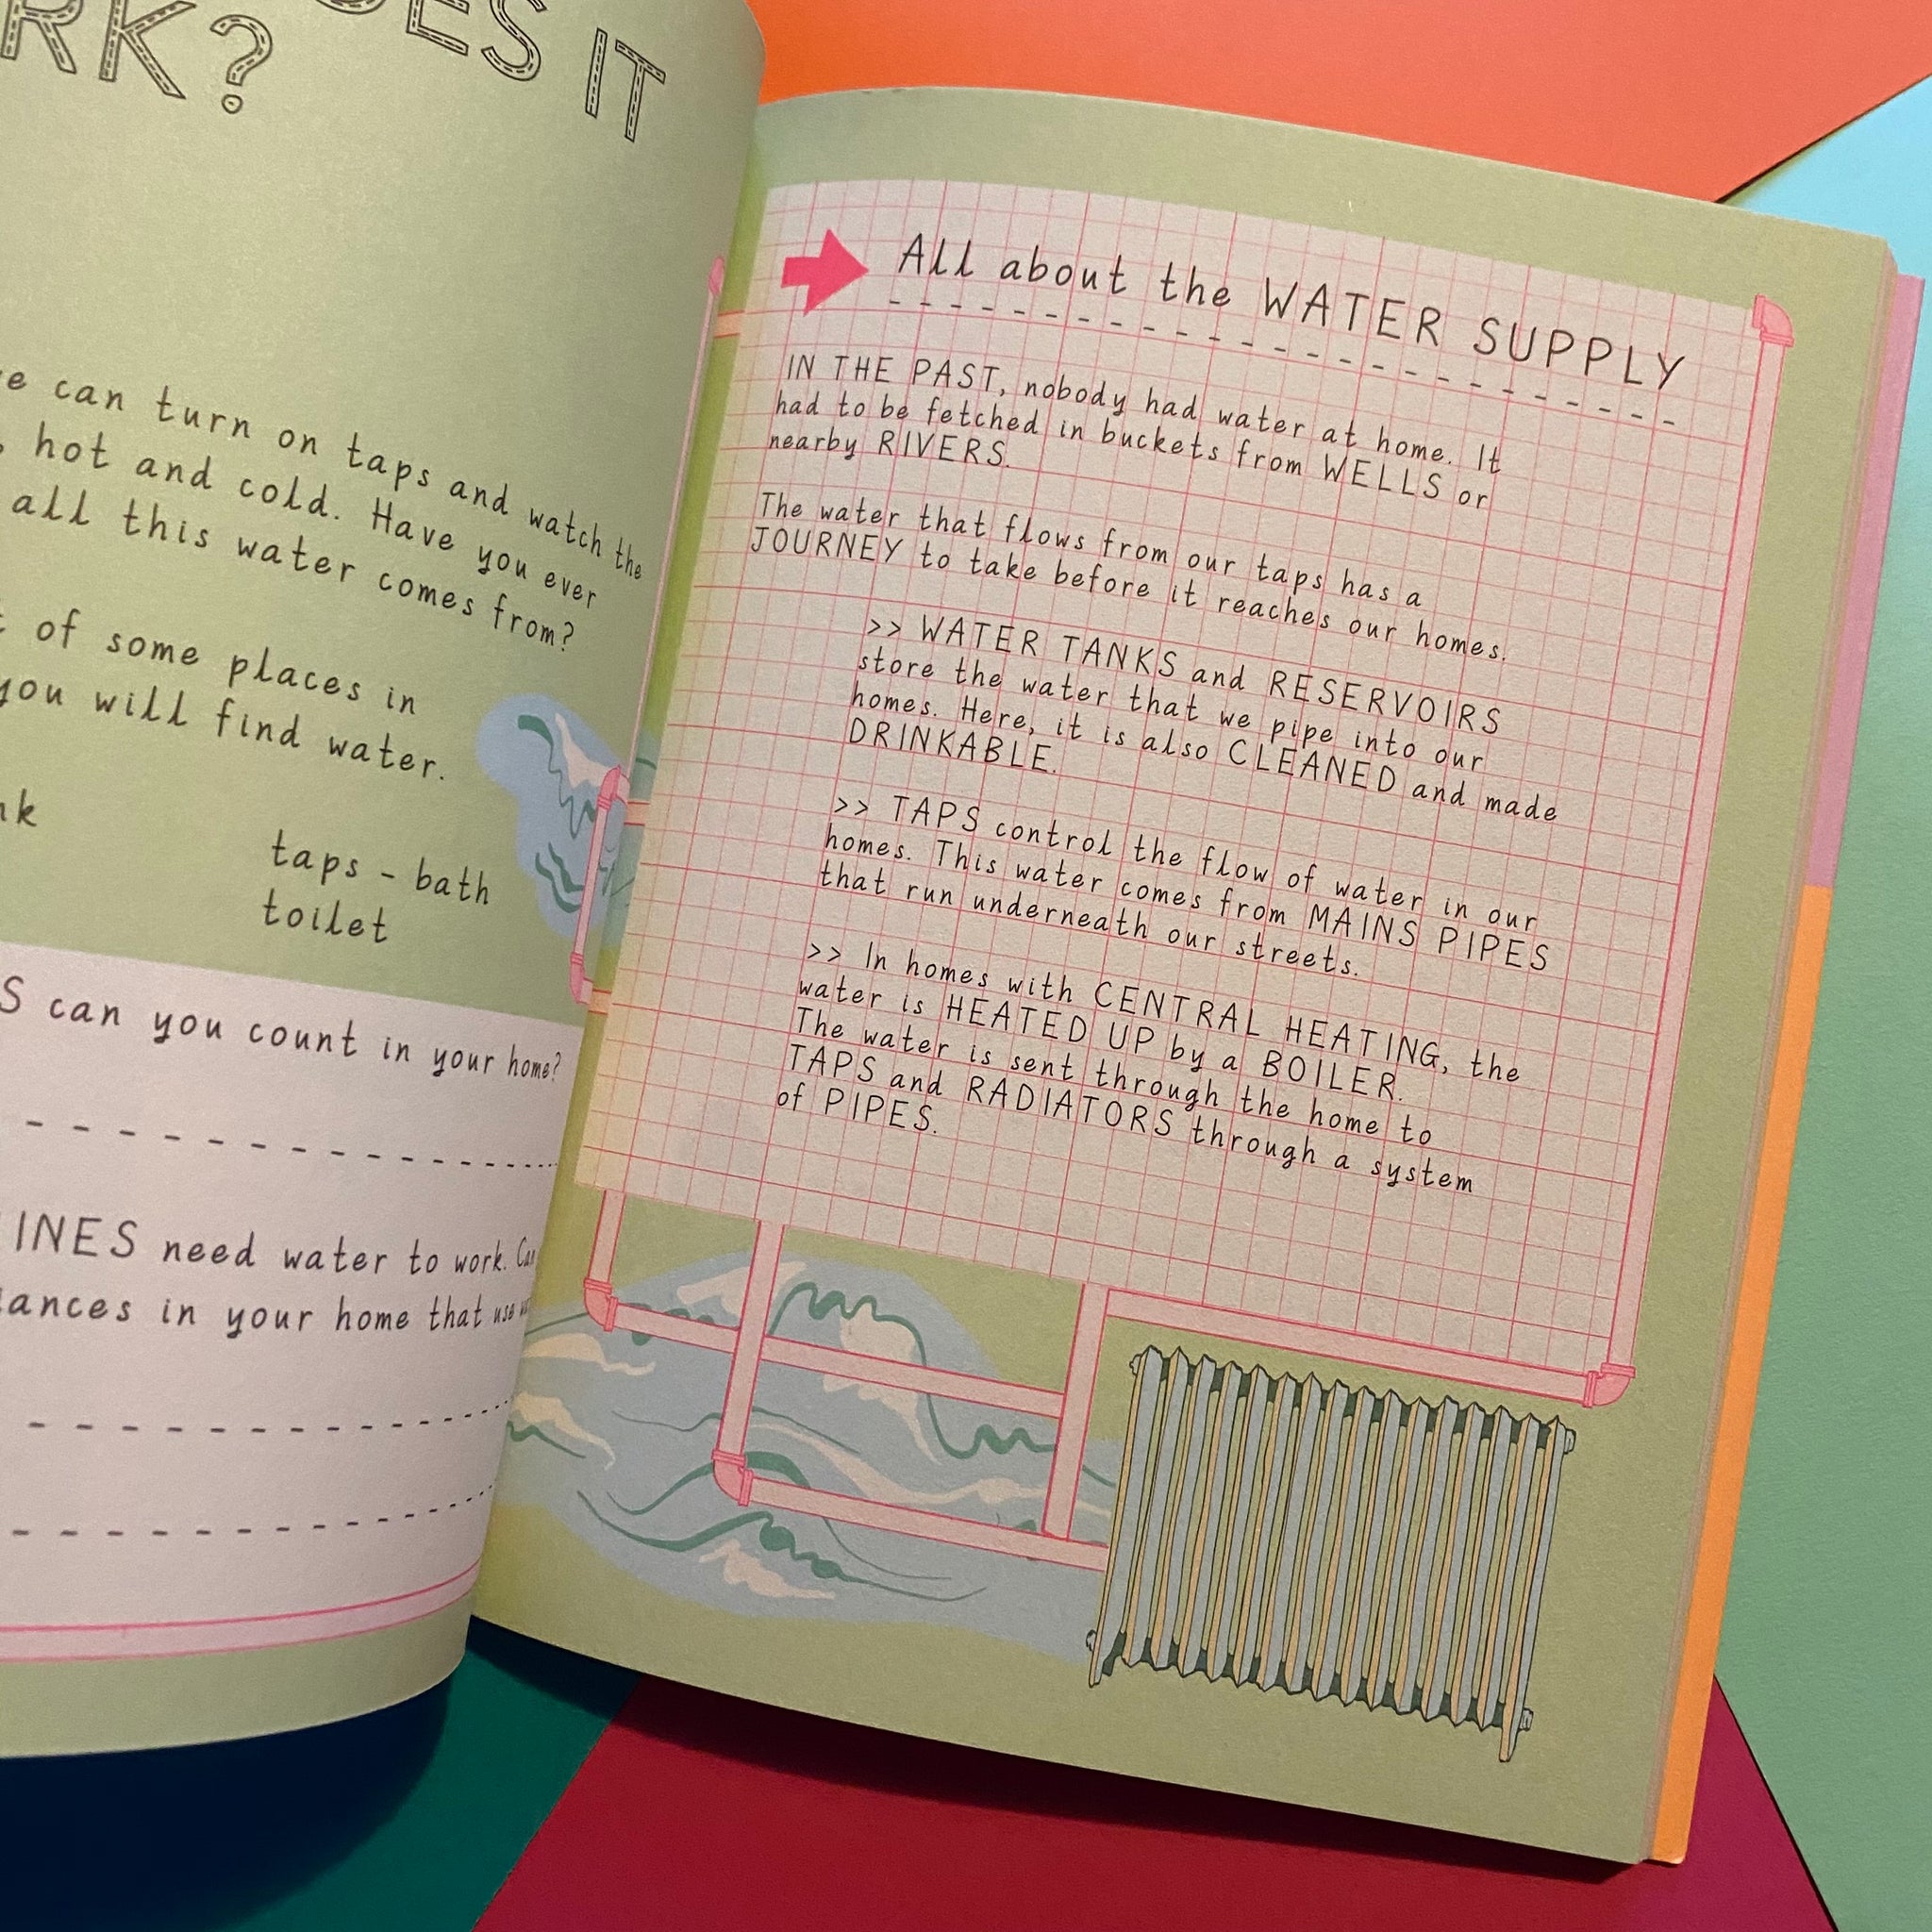 ES IT
RK?
e can turn on taps and watch the
, hot and cold. Have you ever
all this water comes from?
of some places in
you will find water.
nk
taps - bath
toilet
S can you count in your home?
INES need water to work. Can
ances in your home that use
All about the WATER SUPPLY
IN THE PAST, nobody had water at home. It
had to be fetched in buckets from WELLS or
nearby RIVERS.
The water that flows from our taps has a
JOURNEY to take before it reaches our homes.
>> WATER TANKS and RESERVOIRS
store the water that we pipe into our
homes. Here, it is also CLEANED and made
DRINKABLE.
>> TAPS control the flow of water in our
homes. This water comes from MAINS PIPES
that run underneath our streets.
>> In homes with CENTRAL HEATING, the
water is HEATED UP by a BOILER.
The water is sent through the home to
TAPS and RADIATORS through a system
of PIPES.